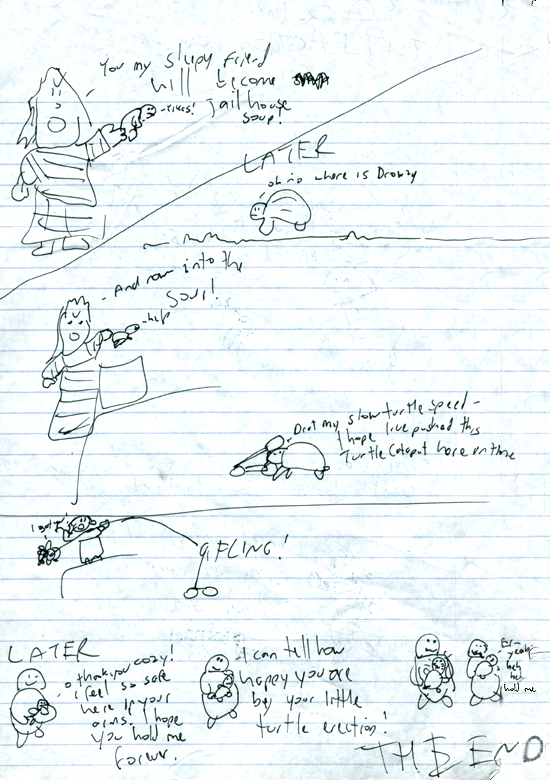 You my sleepy friend
will become
jail house
soup!
-yikes!
LATER
oh no where is Drowzy
-And now into the
soup!
-help
Drat my slow turtle speed-
I hope I've pushed this
Turtle catapult here on time
I got
SPLING!
LATER
thank you cozy!
i feel so safe
here in your
arms. I hope
you hold me
forever.
I can tell how
happy you are
by your little
turtle erection!
Er-
yeah
heh
heh
hold me
THE END